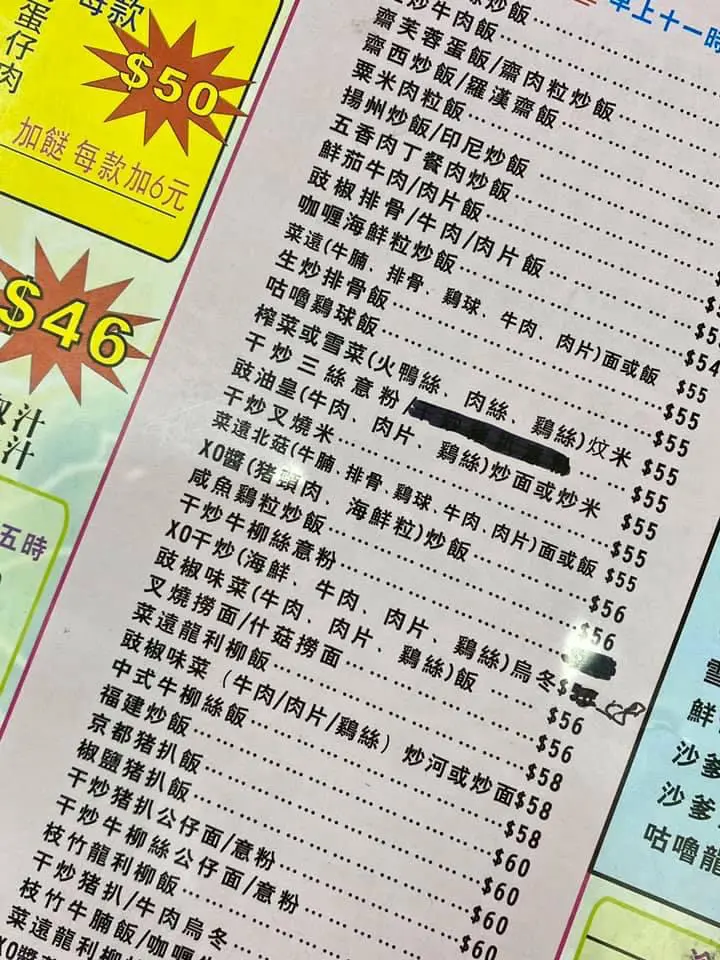 每款
蛋仔
肉
$50
加餸每款加6元
$46
汁
汁
五時
早上十一時
炒飯
生炒牛肉飯
齋芙蓉蛋飯/齋肉粒炒飯
齋西炒飯/羅漢齋飯
粟米肉粒飯
揚州炒飯/印尼炒飯
五香肉丁餐肉炒飯
鮮茄牛肉/肉片飯
豉椒排骨/牛肉/肉片飯
咖喱海鮮粒炒飯 $54
菜遠(牛腩、排骨、鷄球、牛肉、肉片)面或飯 $55
生炒排骨飯 $55
咕嚕鷄球飯 $55
榨菜或雪菜(火鴨絲、肉絲、鷄絲)炆米 $55
干炒三絲意粉/ $55
豉油皇(牛肉、肉片、鷄絲)炒面或炒米 $55
干炒叉燒米 $55
菜遠北菇(牛腩、排骨、鷄球、牛肉、肉片)面或飯 $55
XO醬(猪頸肉、海鮮粒)炒飯 $56
咸魚鷄粒炒飯 $56
干炒牛柳絲意粉
XO干炒(海鮮、牛肉、肉片、鷄絲)烏冬$
豉椒味菜(牛肉、肉片、鷄絲)飯 $56
叉燒撈面/什菇撈面 $56
菜遠龍利柳飯 $58
豉椒味菜(牛肉/肉片/鷄絲)炒河或炒面$58
中式牛柳絲飯 $58
福建炒飯 $60
京都猪扒飯 $60
椒鹽猪扒飯 $60
干炒猪扒公仔面/意粉 $60
干炒牛柳絲公仔面/意粉
枝竹龍利柳飯
干炒猪扒/牛肉烏冬
枝竹牛腩飯/咖喱牛
菜遠龍利柳
XO醬
雪
鮮
沙爹
沙爹
咕嚕龍